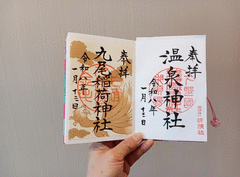 奉拝
温泉神社
令和八年
一月十二日
奉拝
九尾稲荷神社
令和八年
一月十二日